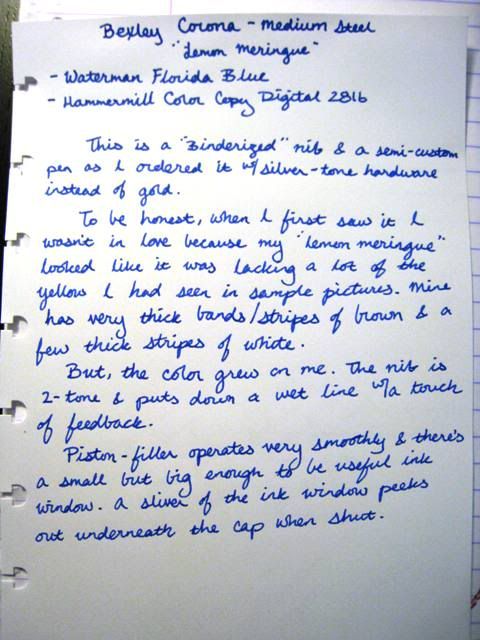 Bexley Corona - Medium Steel
"Lemon Meringue"
- Waterman Florida Blue
- Hammermill Color Copy Digital 28lb
This is a "Binderized" nib & a semi-custom
pen as I ordered it w/ silver-tone hardware
instead of gold.
To be honest, when I first saw it I
wasn't in love because my "lemon meringue"
looked like it was lacking a lot of the
yellow I had seen in sample pictures. Mine
has very thick bands/stripes of brown & a
few thick stripes of white.
But, the color grew on me. The nib is
2-tone & puts down a wet line w/a touch
of feedback.
Piston-filler operates very smoothly & there's
a small but big enough to be useful ink
window. A sliver of the ink window peeks
out underneath the cap when shut.